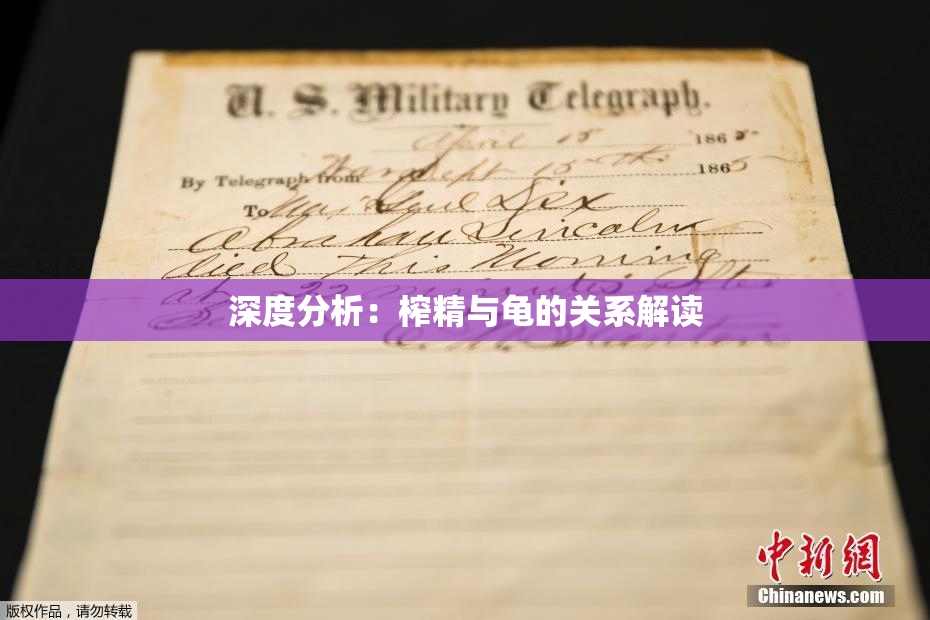 U. S. Military Telegraph.
April 15 1865
By Telegraph from War Dept 15th 1865
To Maj Genl Dix
Abraham Lincoln
died this Morning
at 22 minutes after
深度分析：榨精与龟的关系解读
E. M. Stanton
中新网
Chinanews.com
版权作品，请勿转载